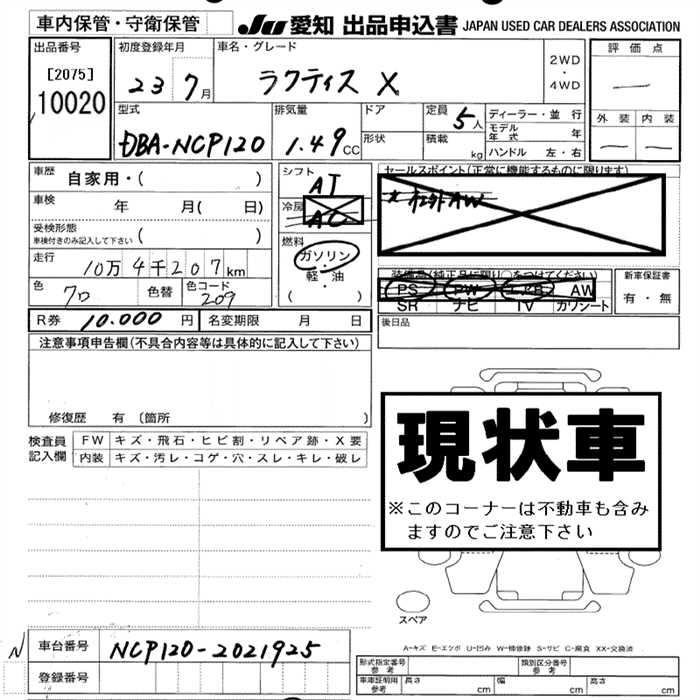 車内保管・守衛保管
JU 愛知 出品申込書 JAPAN USED CAR DEALERS ASSOCIATION
出品番号
[2075]
10020
初度登録年月
23 7月
車名・グレード
ラクティス X
2WD
・
4WD
評価点
—
外装 内装
— —
型式
DBA-NCP120
排気量
1.49CC
ドア
形状
定員 5人
積載 kg
ディーラー・並行
モデル年式 年
ハンドル 左・右
車歴 自家用・( )
車検 年 月( 日)
受検形態
車検付きのみ記入して下さい ( )
走行 10万4千207km
色 クロ
色替
色コード 209
シフト
AT
冷房
AC
燃料
ガソリン
・
軽・油
( )
セールスポイント(正常に機能するものに限ります)
AW
装備品(純正品に限り○をつけてください)
PS PW エアB AW
SR ナビ TV カワシート
新車保証書
有・無
後日品
R券 10.000 円
名変期限 月 日
注意事項申告欄(不具合内容等は具体的に記入して下さい)
修復歴 有 (箇所 )
検査員
記入欄
FW キズ・飛石・ヒビ割・リペア跡・X要
内装 キズ・汚レ・コゲ・穴・スレ・キレ・破レ
現状車
※このコーナーは不動車も含み
ますのでご注意下さい
スペア
A-キズ E-エクボ U-凹み W-補修跡 S-サビ C-腐食 XX-交換済
N
車台番号 NCP120-2021925
登録番号
形式指定番号
参考
類別区分番号
参考
車庫証明用
参考
長さ cm
幅 cm
高さ cm